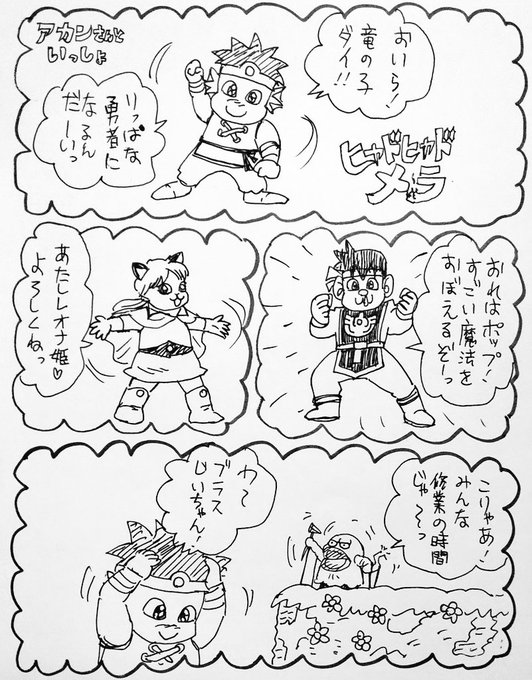 アカンさんと
いっしょ
おいら！
竜の子
ダイ！！
りっぱな
勇者に
なるん
だーいっ
ヒャドヒャド
メラ
おれはポップ！
すごい魔法を
おぼえるぞーっ
あたしレオナ姫♡
よろしくね。
こりゃあ！
みんな
修業の時間
じゃ～っ
わ～
ブラス
じいちゃん！